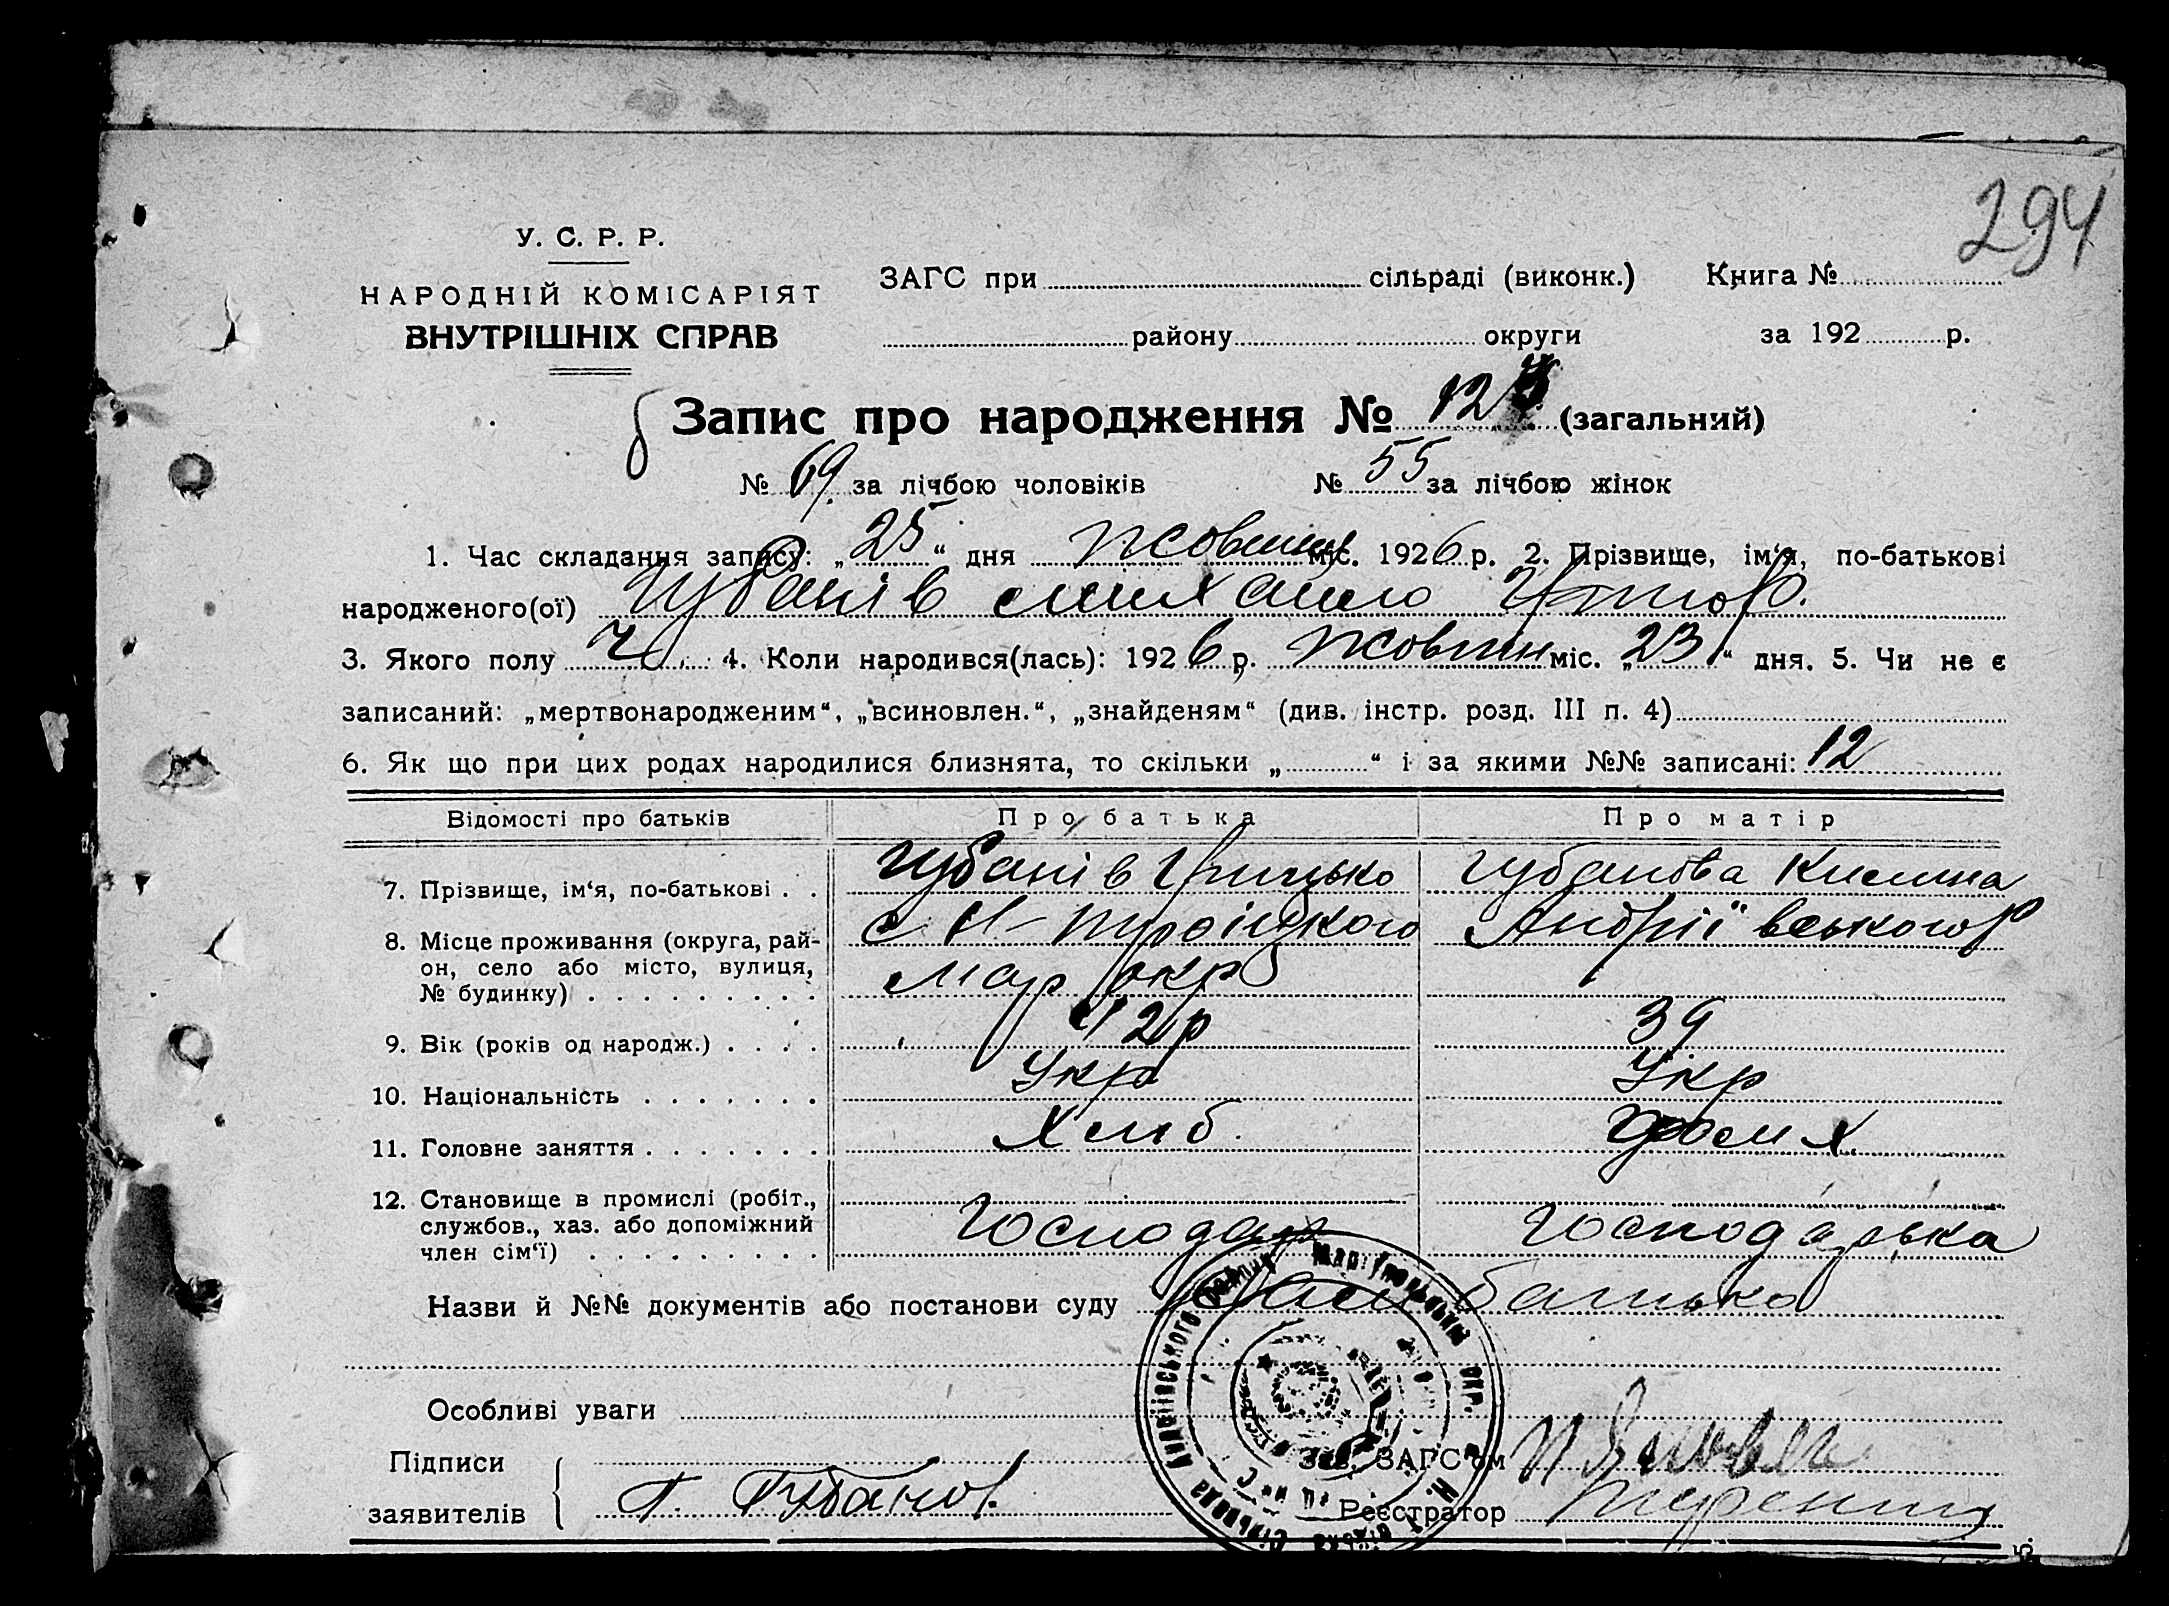 294
У. С. Р. Р.
НАРОДНІЙ КОМІСАРІЯТ
ВНУТРІШНІХ СПРАВ
ЗАГС при сільраді (виконк.) Книга №
району округи за 192 р.
Запис про народження № 124 (загальний)
№ 69 за лічбою чоловіків № 55 за лічбою жінок
1. Час складання запису: „25“ дня Жовтня міс. 1926 р. 2. Прізвище, ім‘я, по-батькові
народженого(ої) Губанів Михайло
3. Якого полу Ч. 4. Коли народився(лась): 1926 р. Жовтн міс. „23“ дня. 5. Чи не є
записаний: „мертвонародженим“, „всиновлен.“, „знайденям“ (див. інстр. розд. III п. 4)
6. Як що при цих родах народилися близнята, то скільки „ “ і за якими №№ записані: 12
Відомості про батьків Про батька Про матір
7. Прізвище, ім‘я, по-батькові . . Губанів Грицько Губанова Килина
8. Місце проживання (округа, рай- с Н-Троіцкого Андріївського Р
он, село або місто, вулиця, Мар окр
№ будинку) . . . . . . . . .
9. Вік (років од народж.) . . . . 42р 39
10. Національність . . . . . . . Укр Укр
11. Головне заняття . . . . . . . Хліб.
12. Становище в промислі (робіт.,
службов., хаз. або допоміжний Господар Господарька
член сім‘ї) . . . . . . . . .
Назви й №№ документів або постанови суду батько
Особливі уваги
Підписи Зав. ЗАГС‘ом
заявителів Г. Губанов. Реєстратор